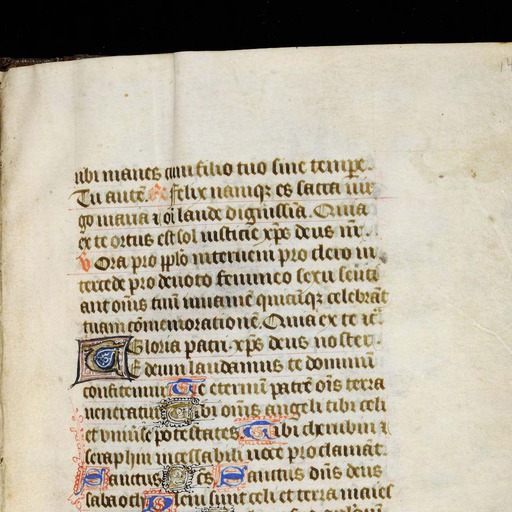 ubi manes cum filio tuo sine tempe.
Tu autē. Re Felix namqꝫ es sacra uir
go maria ⁊ oī laude dignissīa. Quia
ex te ortus est sol iusticie xp̄s deus nr̄.
V Ora pro pplō interueni pro clero in
tercede pro deuoto femineo sexu sēnti
ant oīns tuū iuuamē quicūqꝫ celebrāt
tuam cōmemorationē. Quia ex te ic̄
Gloria patri. xp̄s deus noster.
Te deum laudamus te dominū
confitemur. Te eternū patrē oīs terra
ueneratur Tibi oīns angeli tibi celi
et vniuīse potestates. Tibi cherubin ⁊
seraphin incessabili uoce proclamāt.
Sanctus Sc̄s Sanctus dn̄s deus
sabaoth Pleni sunt celi et terra maies